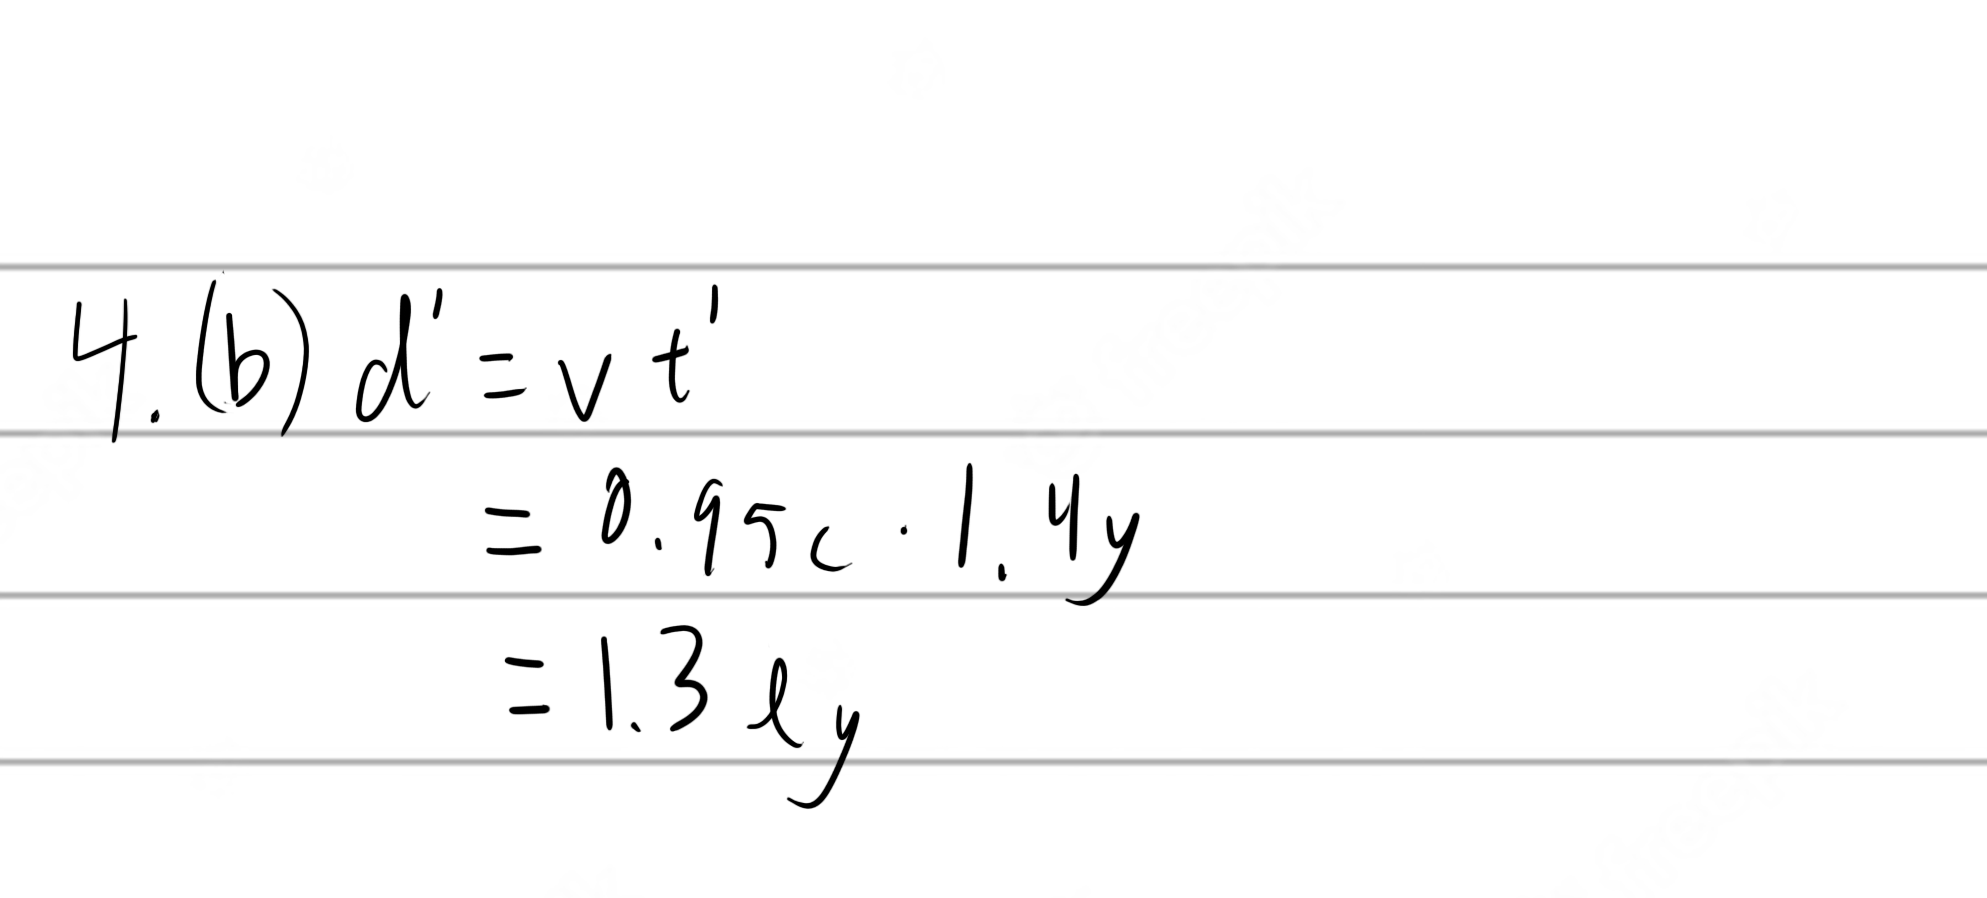 4. (b) d' = v t'
= 0.95c · 1.4y
= 1.3 ly